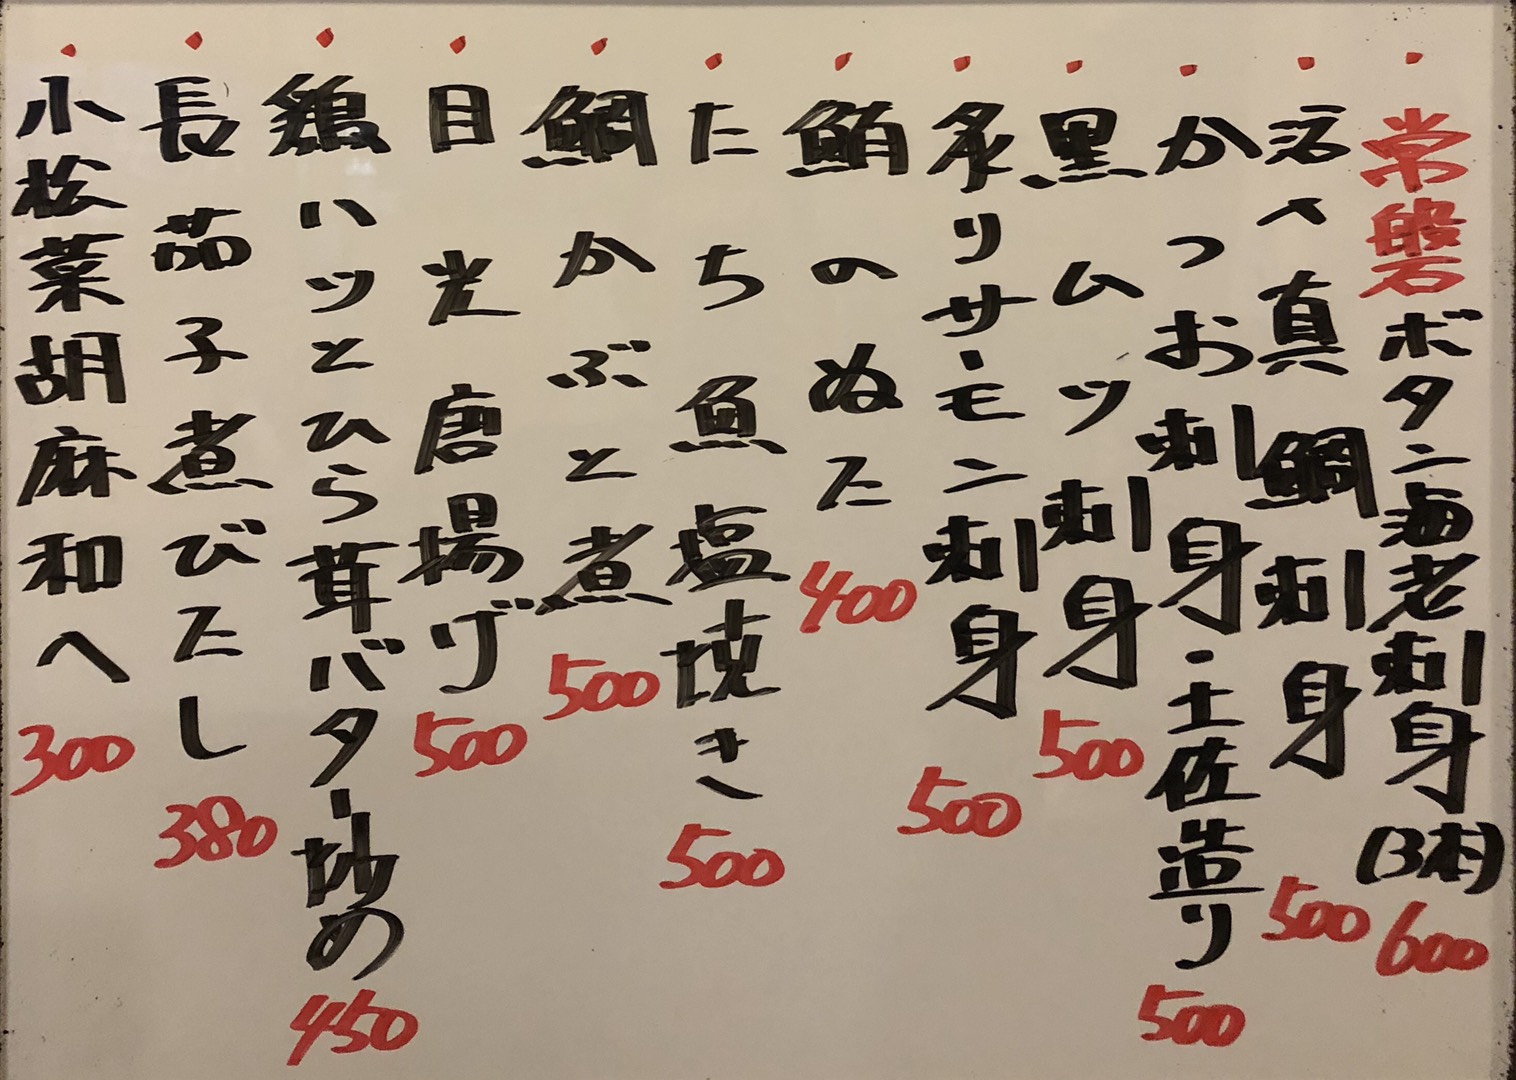 常磐ボタン海老刺身(3本) 600
活〆真鯛刺身 500
かつお刺身・土佐造り 500
黒ムツ刺身 500
炙りサーモン刺身 500
鮪のぬた 400
たち魚塩焼き 500
鯛かぶと煮 500
目光唐揚げ 500
鶏ハツとひら茸バター炒め 450
長茄子煮びたし 380
小松菜胡麻和へ 300